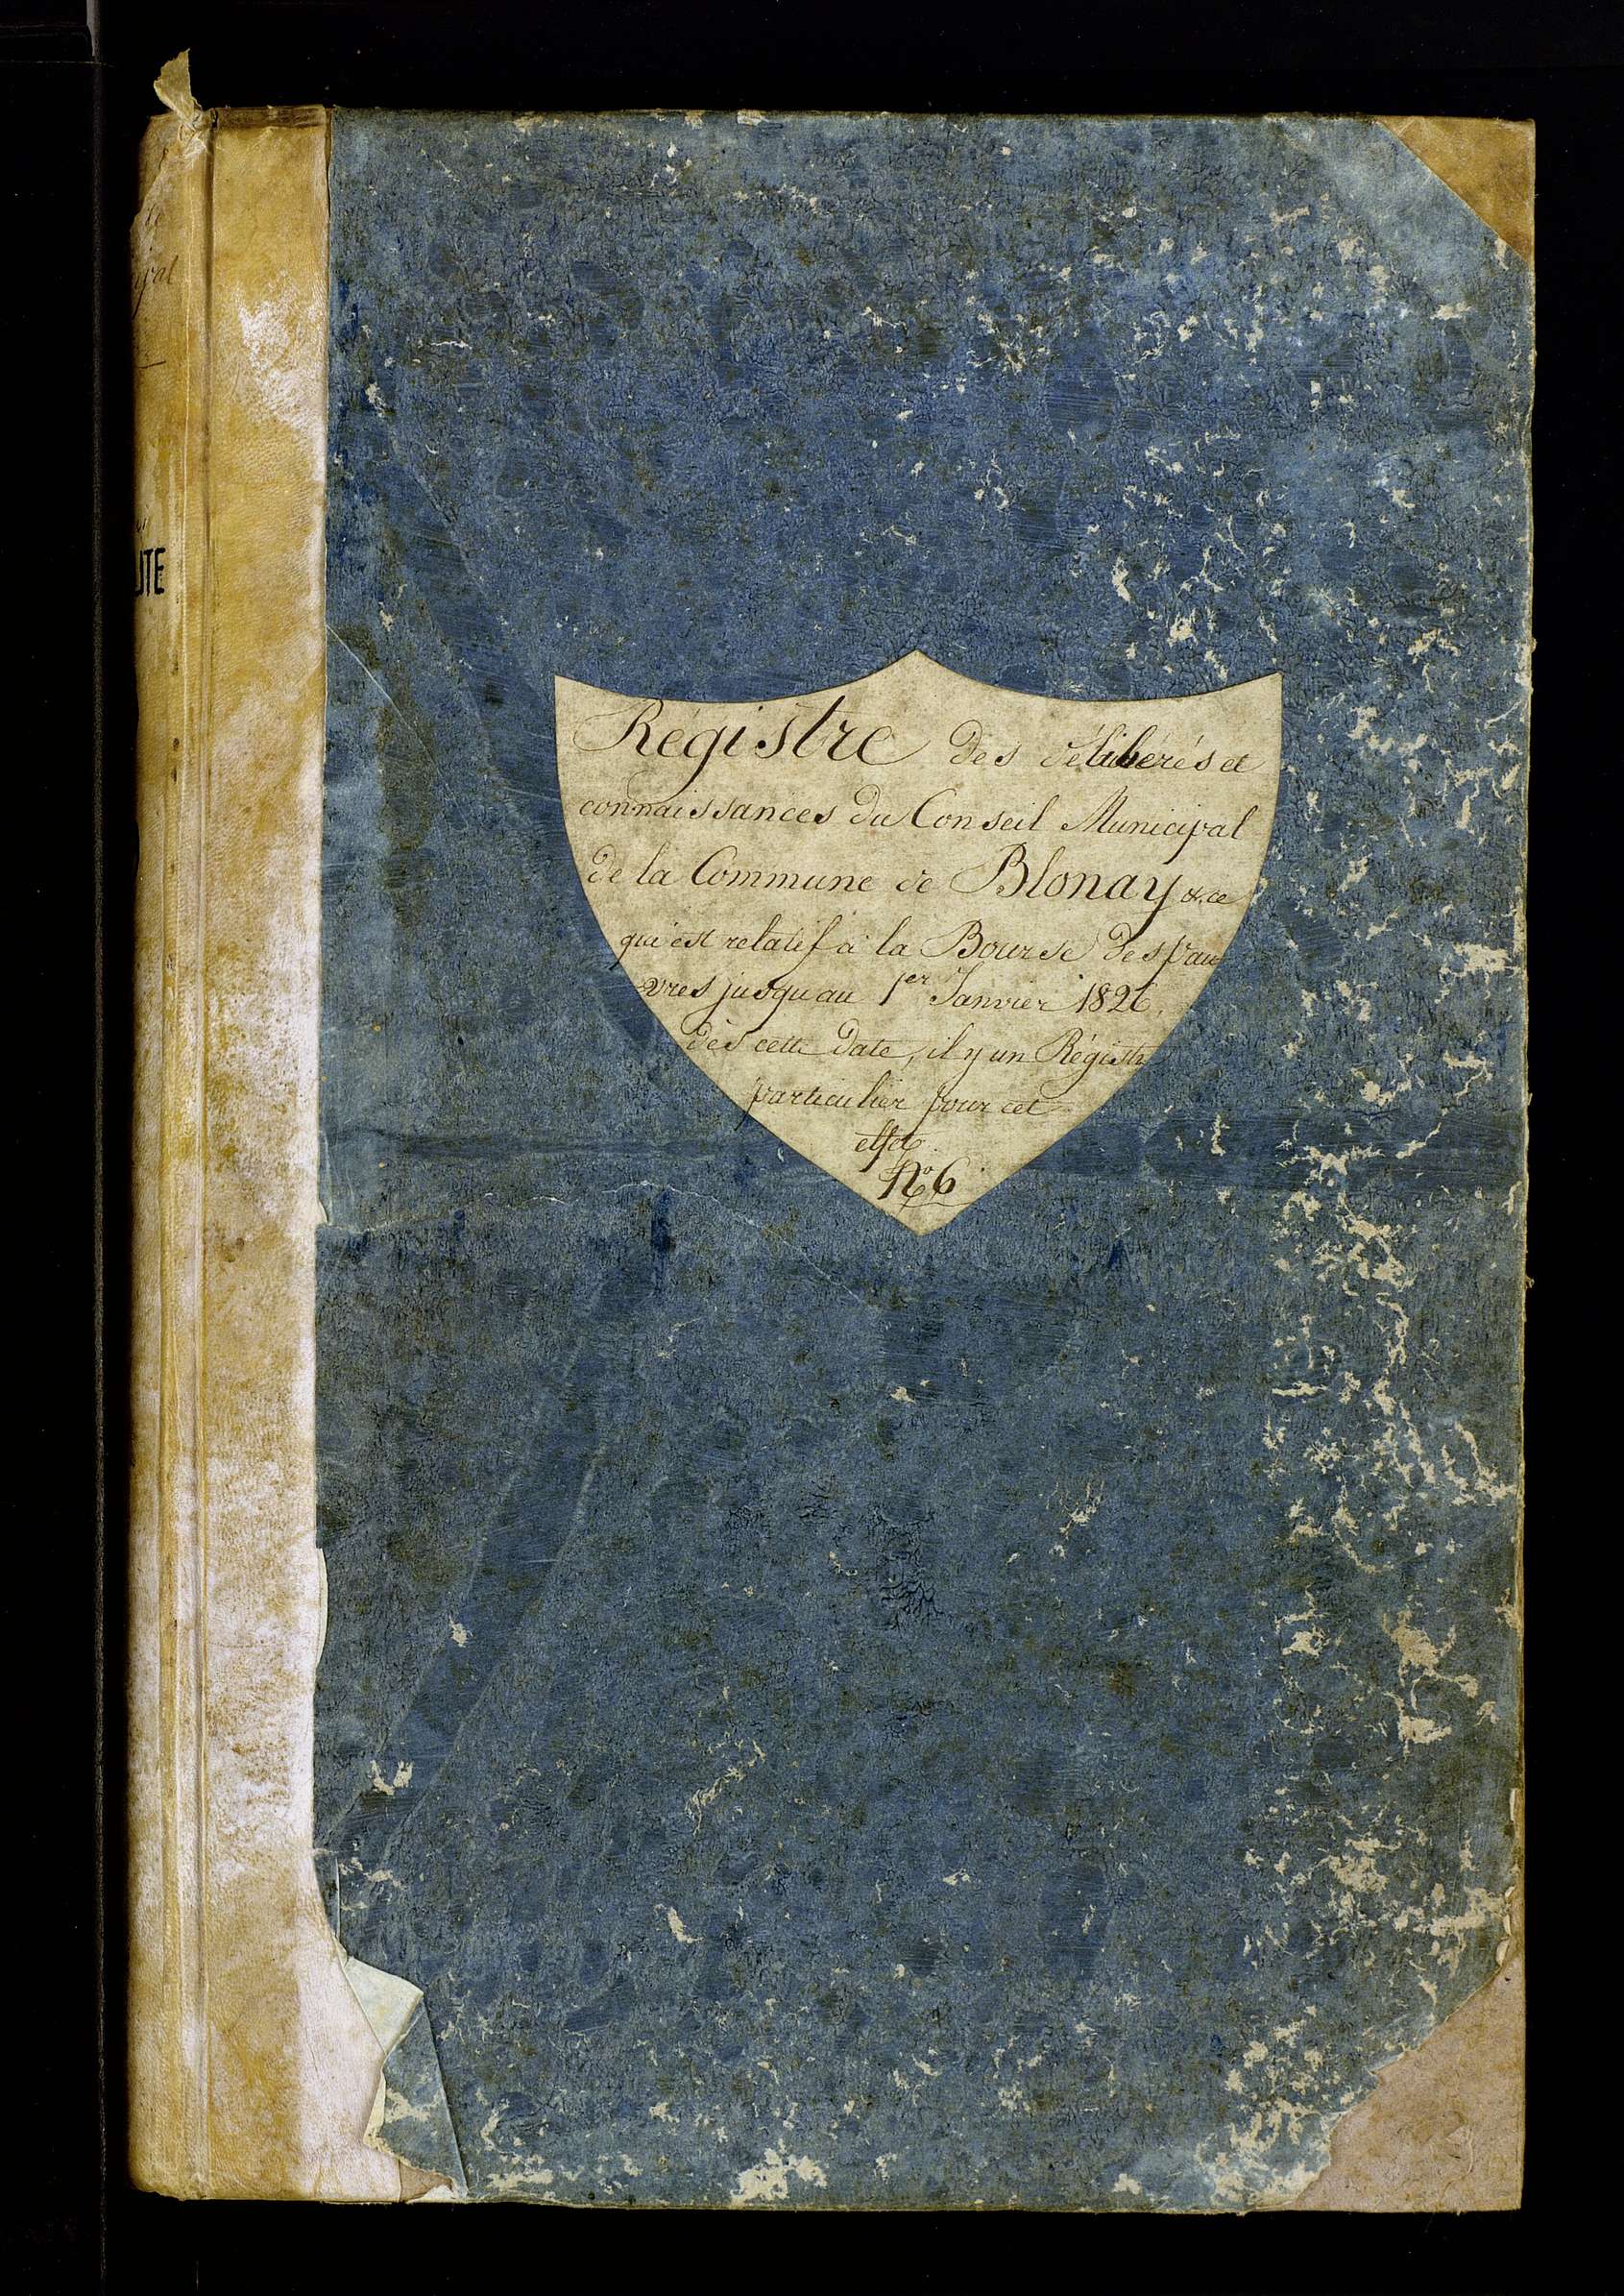 Régistre des délibérés et
connaissances du Conseil Municipal
de la Commune de Blonay & ce
qui est relatif à la Bourse des pau
vres jusqu'au 1er Janvier 1826,
dès cette date, il y un Régistre
particulier pour cet
effet.
No 6